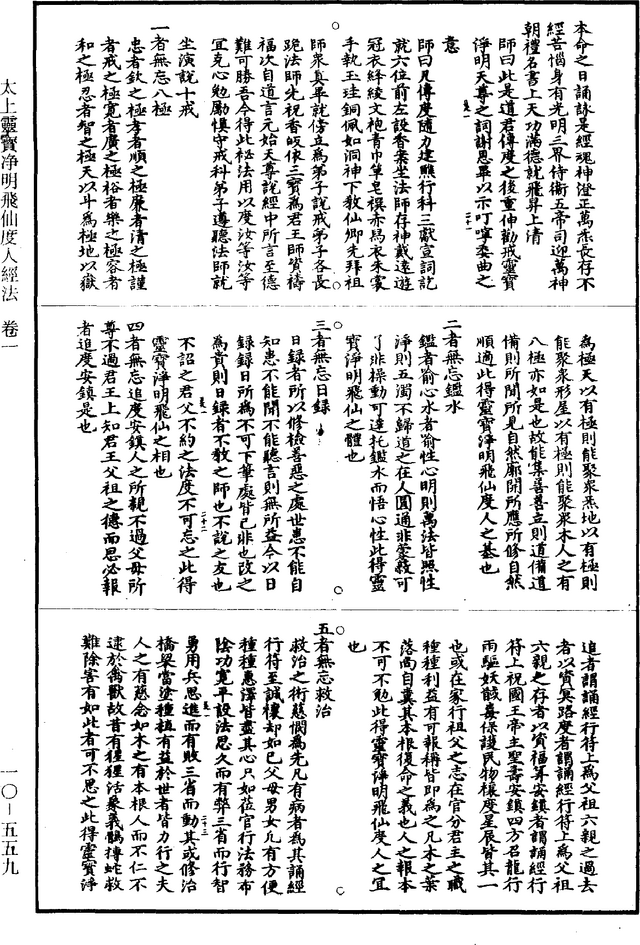 本命之日誦詠是經魂神澄正萬炁長存不
經苦惱身有光明三界侍衛五帝司迎萬神
朝禮名書上天功滿德就飛昇上清
師曰此是道君傳度之後重伸勸戒靈寶
淨明天尊之詞謝恩畢以示叮嚀委曲之
意
師曰凡傳度隨力建醮行科三獻宣詞訖
就六位前左設香案坐法師存神戴遠遊
冠衣絳綾文袍青巾單皂襈赤舄衣朱裳
手執玉珪銅佩如洞神下教仙卿先拜祖
師衆真畢就傍立為弟子說戒弟子各長
跪法師先祝香皈依三寶為君王師資禱
福次自道言元始天尊說經中所言至德
難可勝吾今得此祕法用以度汝等汝等
宜克心勉勵慎守戒科弟子遵聽法師就
坐演說十戒
一者無忘八極
忠者欽之極孝者順之極廉者清之極謹
者戒之極寬者廣之極裕者樂之極容者
和之極忍者智之極天以斗為極地以嶽
為極天以有極則能聚衆炁地以有極則
能聚衆形屋以有極則能聚衆木人之有
八極亦如是也故能集善善立則道備道
備則所聞所見自然廓開所應所修自然
順適此得靈寶淨明飛仙度人之基也
二者無忘鑑水
鑑者喻心水者喻性心明則萬法皆照性
淨則五濁不歸道之在人圓通非蒙蔽可
了非操動可達托鑑水而悟心性此得靈
寶淨明飛仙之體也
三者無忘日錄
日錄者所以修檢善惡之處世患不能自
知患不能聞不能聽言則無所益今以日
錄錄日所為不可下筆處皆己非也改之
為貴則日錄者不教之師也不說之友也
不詔之君父不約之法度不可忘之此得
靈寶淨明飛仙之相也
四者無忘追度安鎮人之所親不過父母所
尊不過君王上知君王父祖之德而思必報
者追度安鎮是也
追者謂誦經行符上為父祖六親之過去
者以資冥路度者謂誦經行符上為父祖
六親之存者以資福筭安鎮者謂誦經行
符上祝國王帝主聖壽安鎮四方召龍行
雨驅妖馘毒保護民物禳度星辰皆其一
也或在家行祖父之志在官分君主之職
種種利益有可報稱皆即為之凡木之葉
落而自糞其本根復命之義也人之報本
不可不勉此得靈寶淨明飛仙度人之宜
也
五者無忘救治
救治之術慈憫為先凡有病者為其誦經
行符至誠禳却如己父母男女凡有方便
種種惠澤皆盡其心只如莅官行法務布
陰功寬平設法思久而有弊三省而行智
勇用兵思進而有敗三省而動其或修治
橋梁當塗種植有益於世者皆力行之夫
人之有慈念如木之有本根人而不仁不
逮於禽獸故昔有猩猩活衆義鶻摶蛇救
難除害有如此者可不思之此得靈寶淨
太上靈寶净明飛仙度人經法 卷一
一〇-五五九